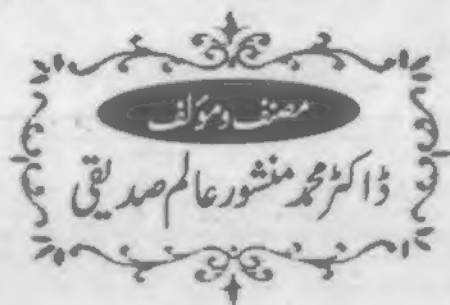 مصنف ومؤلف
ڈاکٹر محمد منشور عالم صدیقی